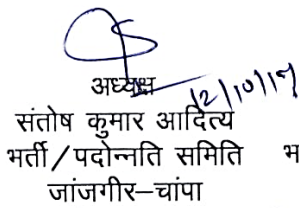 अध्यक्ष
12/10/17
संतोष कुमार आदित्य
भर्ती/पदोन्नति समिति भ
जांजगीर–चांपा